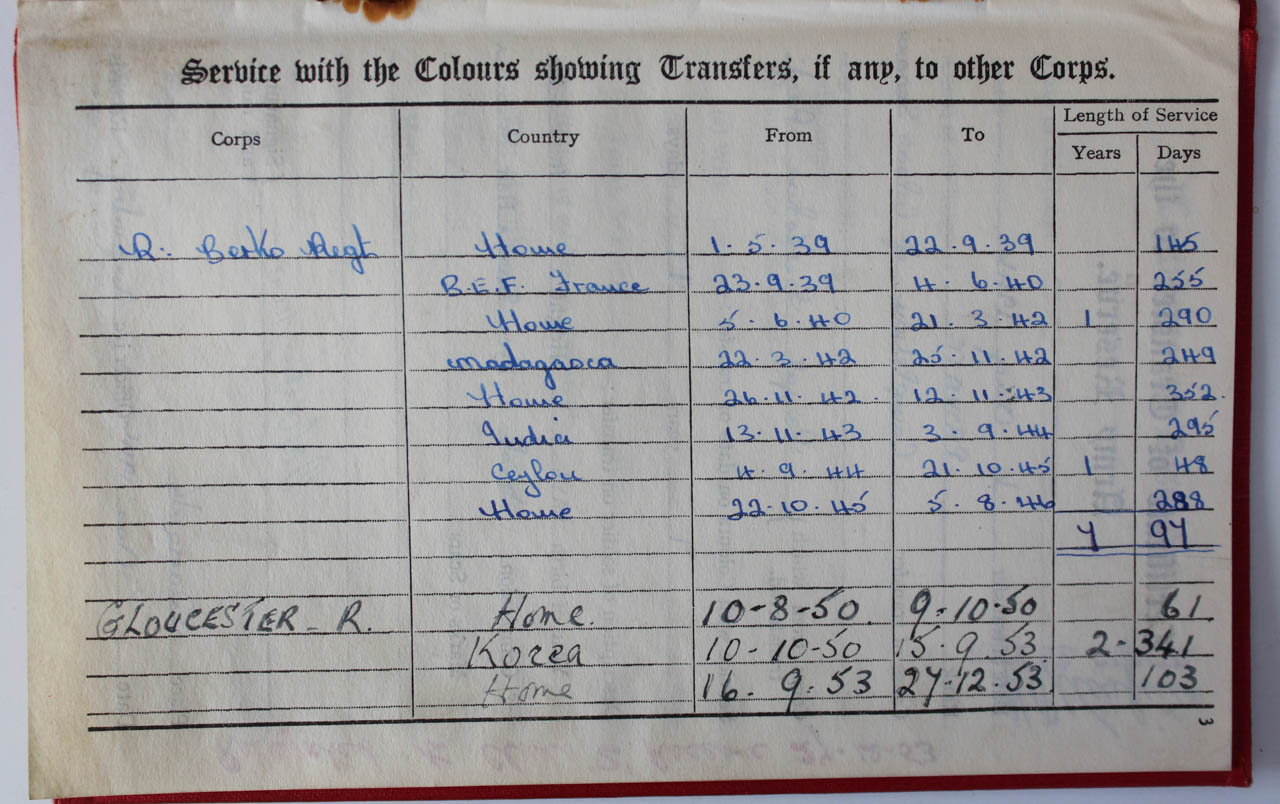 Service with the Colours showing Transfers, if any, to other Corps.
Corps Country From To Length of Service
Years Days
R. Berks Regt Home 1.5.39 22.9.39 145
B.E.F. France 23.9.39 4.6.40 255
Home 5.6.40 21.3.42 1 290
Madagasca 22.3.42 25.11.42 249
Home 26.11.42. 12.11.43 352.
India 13.11.43 3.9.44 295
Ceylon 4.9.44 21.10.45 1 48
Home 22.10.45 5.8.46 288
7 97
GLOUCESTER R. Home. 10-8-50. 9.10.50 61
Korea 10-10-50 15.9.53 2-341
Home 16.9.53 27.12.53 103
3